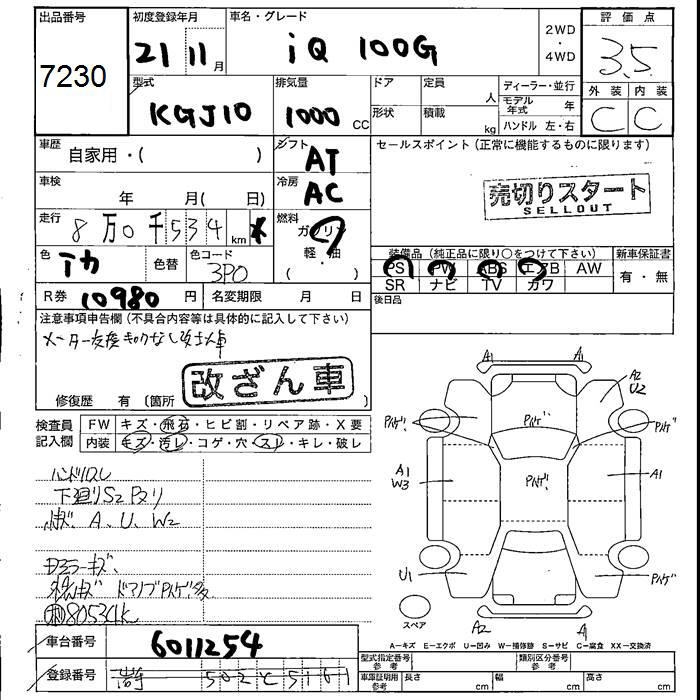 出品番号
7230
初度登録年月
21 11 月
車名・グレード
iQ 100G
2WD
・
4WD
評価点
3.5
外装 内装
C C
型式
KGJ10
排気量
1000 CC
ドア
定員
人
形状
積載
kg
ディーラー・並行
モデル年式 年
ハンドル 左・右
車歴
自家用・( )
シフト
AT
セールスポイント(正常に機能するものに限ります)
売切りスタート
SELLOUT
車検
年 月( 日)
冷房
AC
走行
8万0千534km *
燃料
ガソリン
軽・油
( )
色
色替
色コード
3P0
装備品(純正品に限り〇をつけて下さい)
PS PW ABS エアB AW
SR ナビ TV カワ
新車保証書
有・無
R券 10980 円
名変期限 月 日
後日品
注意事項申告欄(不具合内容等は具体的に記入して下さい)
メーター交換キロクなし改ざん車
改ざん車
修復歴 有(箇所 )
検査員
記入欄
FW キズ・飛石・ヒビ割・リペア跡・X要
内装 キズ・汚レ・コゲ・穴・スレ・キレ・破レ
ハンドルスレ
下廻りS2 Pヌリ
A、U、W2
ドアミラーキズ
ドアノブPハゲ
80534K
車台番号
6011254
登録番号
502 5161
A1 A1
A2
U2
Pハゲ Pハゲ Pハゲ
A1
W3
Pハゲ
A1
U1
Pハゲ
スペア
A2 A1
A−キズ E−エクボ U−凹み W−補修跡 S−サビ C−腐食 XX−交換済
型式指定番号
参考
類別区分番号
参考
車庫証明用
参考
長さ cm 幅 cm 高さ cm